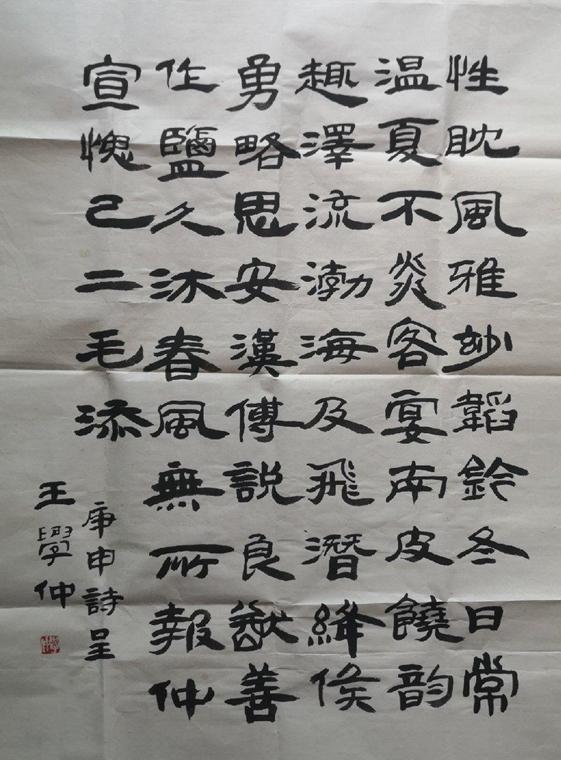 性耽風雅妙韜鈐冬日常
温夏不炎客宴南皮饒韵
趣澤流渤海及飛潛絳侯
勇略思安漢傅說良猷善
作鹽久沐春風無所報仲
宣愧己二毛添
庚申詩呈
王學仲